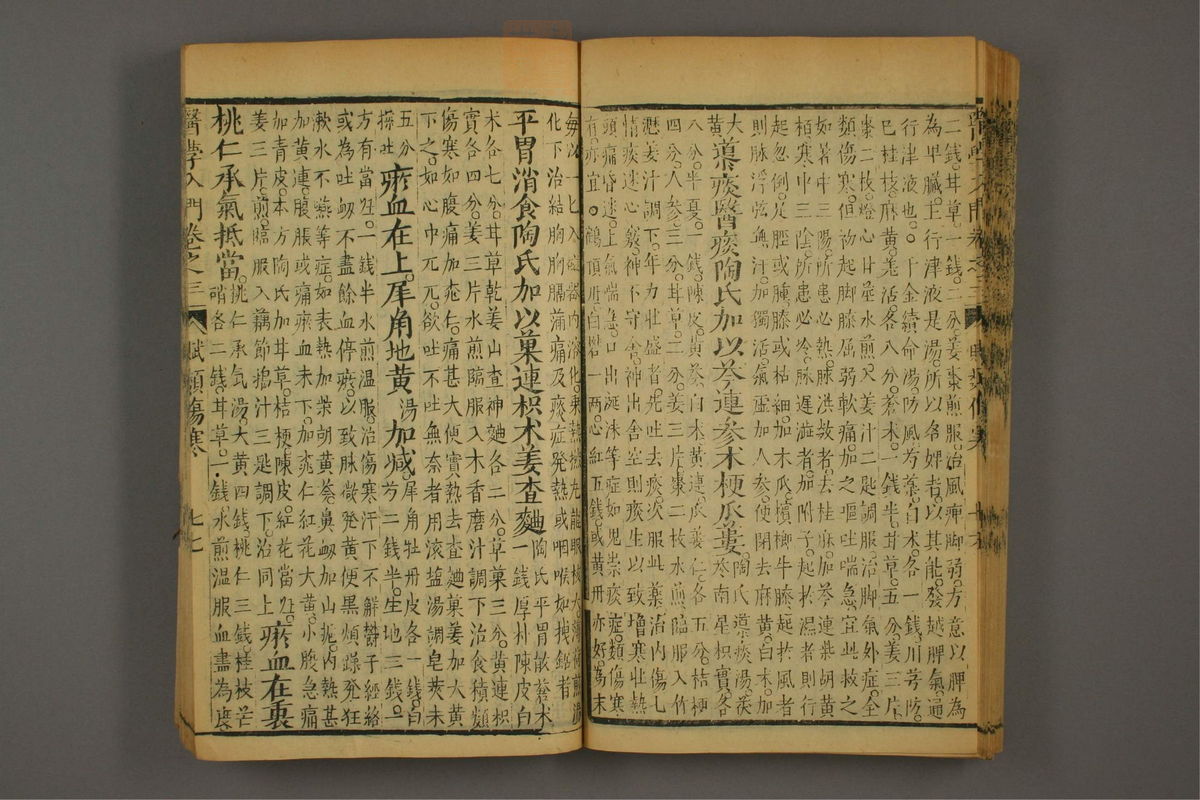 二錢。甘草一錢二分。姜棗煎服。治風痺脚弱。方意以脾為
為卑臟。上行津液是湯。所以名婢者。以其能發越脾氣。通
行津液也。
已桂枝。麻黃。羌活各八分。蒼朮一錢半。甘草五分。姜三片。
棗二枚。燈心廿莖。水煎。入姜汁二匙調服。治脚氣外症。全
類傷寒。但初起脚膝屈弱軟痛。加之嘔吐喘急。宜此救之
如暑中三陽。所患必熱。脉洪数者。去桂麻。加芩連柴胡黃
栢。寒中三陰。所患必冷。脉遲澁者。加附子。起於濕者則行
起忽倒。足脛或腫。膝或枯細。加木瓜檳榔牛膝。起於風者
則脉浮弦無汗。加獨活。氣虛加人参。便閉去麻黃白朮。加
大黃
導痰醫痰陶氏加以芩連参朮梗瓜蔞 陶氏導痰湯。茯苓南星枳實。各
八分。半夏一錢。陳皮。黃芩。白朮。黃連。瓜蔞仁。各五分。桔梗
四分。人参三分。甘草二分。姜三片。棗二枚。水煎。臨服入竹
瀝姜汁調下。年力壮盛者。先吐去痰。次服此藥。治内傷七
情。痰迷心竅。神不守舍。神出舍空則痰生。以致增寒壮熱
頭痛昏迷。上氣喘急。口出涎沫等症。如鬼祟。痰症類傷寒。
有亦宜。鶴頂丹。白礬一两。心紅五錢。或黃丹亦好。為末
化下。治結胸胸膈滿痛。及痰症發熱。或咽喉如拽鋸者
平胃消食陶氏加以菓連枳朮姜查麯 陶氏平胃散。蒼朮一錢。厚朴陳皮白
朮各七分。甘草乾姜山查神麯各二分。草菓三分。黃連枳
實各四分。姜三片。水煎。臨服入木香磨汁調下。治食積類
傷寒。如腹痛加桃仁。痛甚大便實熱。去查麯菓姜加大黃
下之。如心中兀兀欲吐不吐無奈者。用滚鹽湯調皂莢末
五分探吐
瘀血在上犀角地黃湯加減 犀角牡丹皮各一錢。白芍二錢半。生地三錢。一
方有當歸一錢半。水煎溫服。治傷寒汗下不解。鬱于經絡
或為吐衄不盡。餘血停瘀。以致脉微發黃。便黑煩躁發狂
漱水不嚥等症。如表熱加柴胡黃芩。鼻衄加山梔。内熱甚
加黃連。腹脹或痛。瘀血未下。加桃仁紅花大黃。小腹急痛
加青皮。本方陶氏加甘草。桔梗陳皮。紅花當歸。
姜三片。煎。臨服入藕節搗汁三匙調下。治同上 瘀血在裏
桃仁承氣抵當 桃仁承氣湯。大黃四錢。桃仁三錢。桂枝芒硝各二錢。甘草一錢。水煎溫服。血盡為度。
醫學入門卷之三 賦 類傷寒 七七